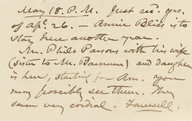 May 18. P.M. Just rec. yrs.
of Apl. 26. – Annie Bliss is to
stay here another year.
Mr. Phils Parsons with his wife
(sister to Mr Barnum) and daughter
is here, starting for Am. you
may possibly see them. They
seem very cordial. Farewell.